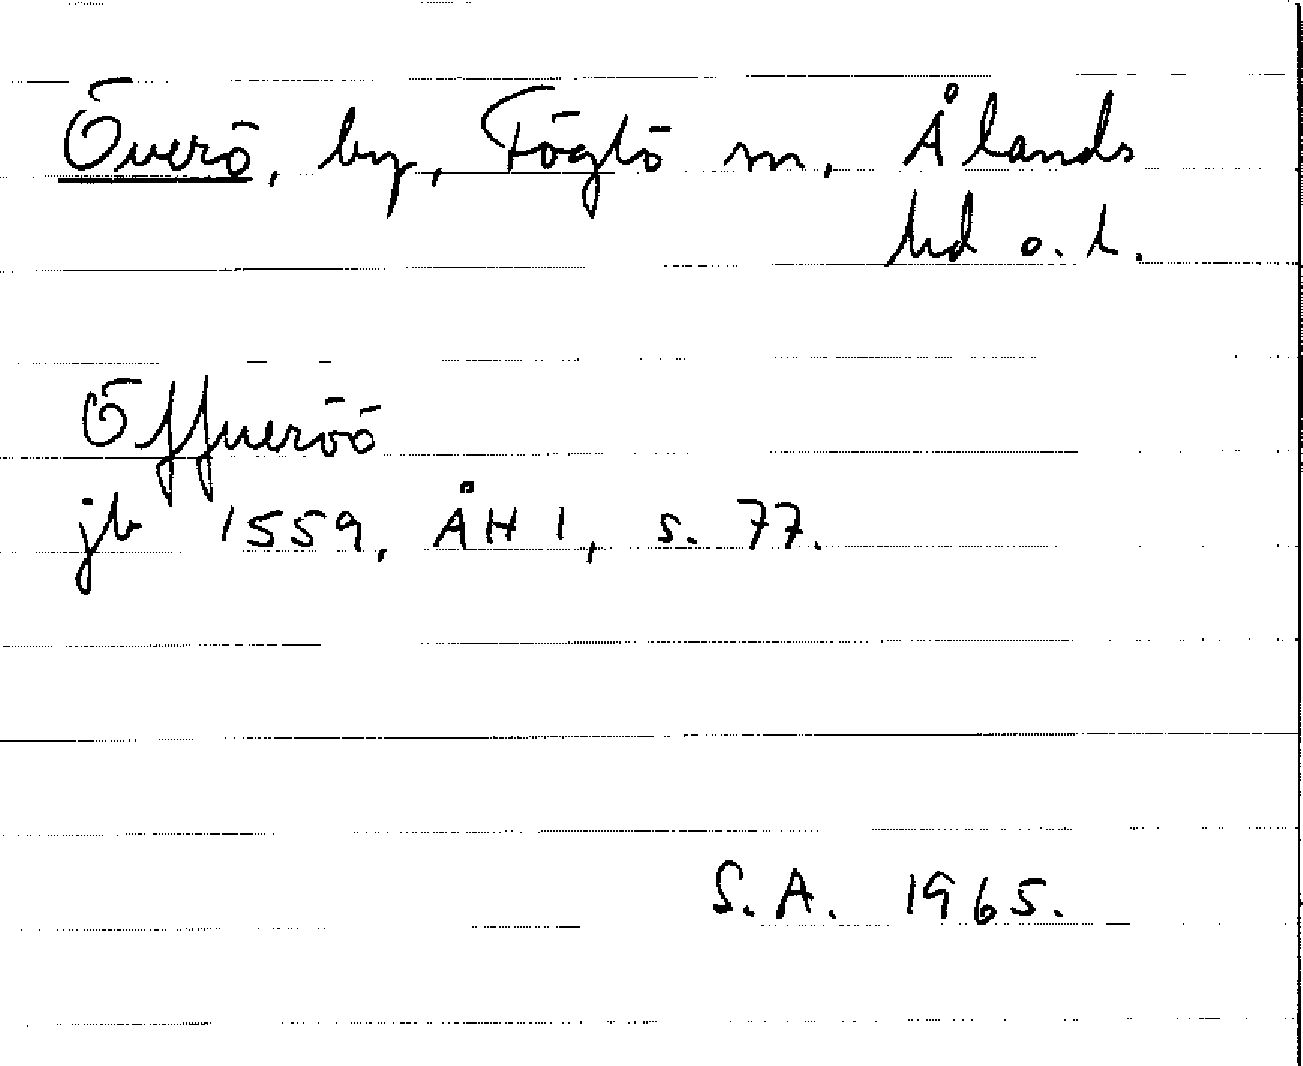 Överö, by, Föglö m, Ålands
hd o. l.
Öffueröö
jb 1559, ÅH 1, s. 77.
S.A. 1965.